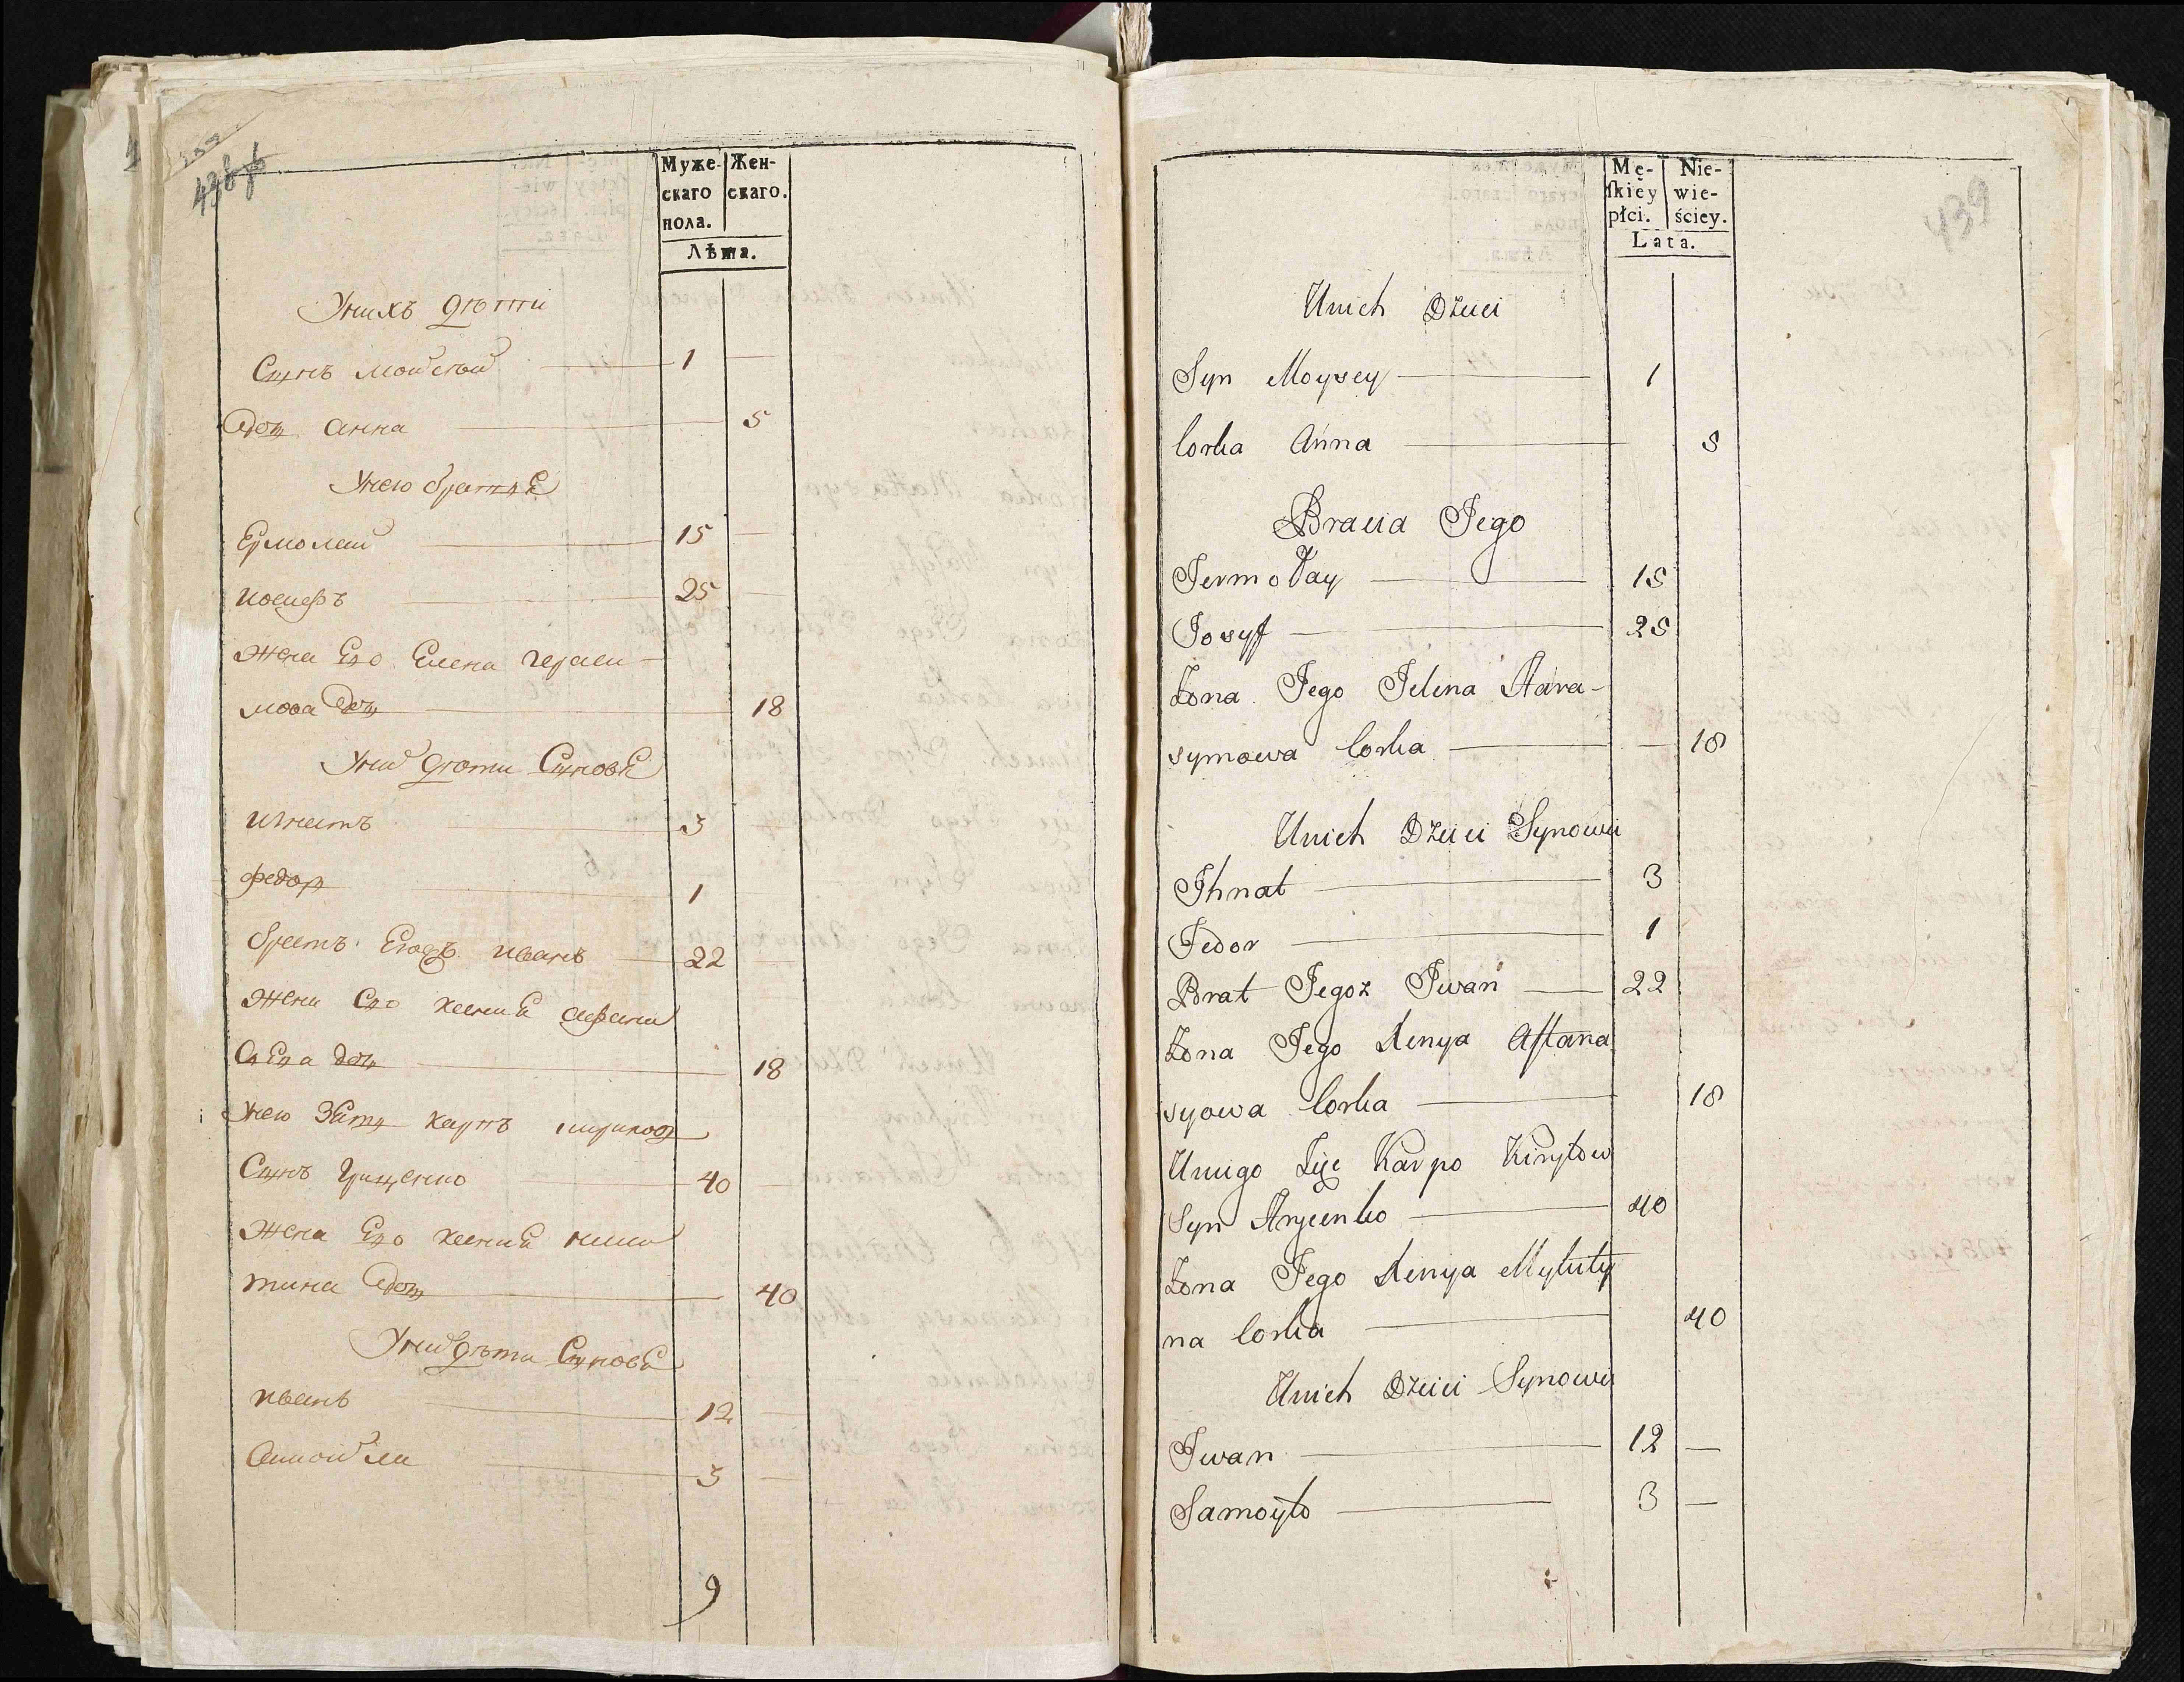 438 об
Муже- Жен-
скаго скаго.
пола.
Лѣта.
Унихъ дѣти
Сынъ Мойсей 1
Доч Анна 5
Унего братья
Ермолай 15
Иосифъ 25
Жена Его Елена Гераси-
мова доч 18
Уних дѣти Сыновя
Игнатъ 3
Федор 1
братъ Егожъ Иванъ 22
Жена Его Ксения Афана
Сѣва доч 18
Унего Зять Карпъ Кирилов
Сынъ Грищенко 40
Жена Его Ксения Ники
тина доч 40
Уних дѣти Сыновя
Иванъ 12
Самойла 3
9
439
Mę- Nie-
ſkiey wie-
płci. ściey.
Lata.
Unich Dzieci
Syn Moysey 1
Corka Anna 5
Bracia Jego
Jermołay 15
Josyf 25
Żona Jego Jelena Hara-
symowa Corka 18
Unich Dzieci Synowie
Ihnat 3
Fedor 1
Brat Jegoż Iwan 22
Żona Jego Xenya Aftana
syowa Corka 18
Uniego Zięć Karpo Kiryłow
Syn Hrycenko 40
Żona Jego Xenya Mykity
na Corka 40
Unich Dzieci Synowie
Iwan 12
Samoyło 3